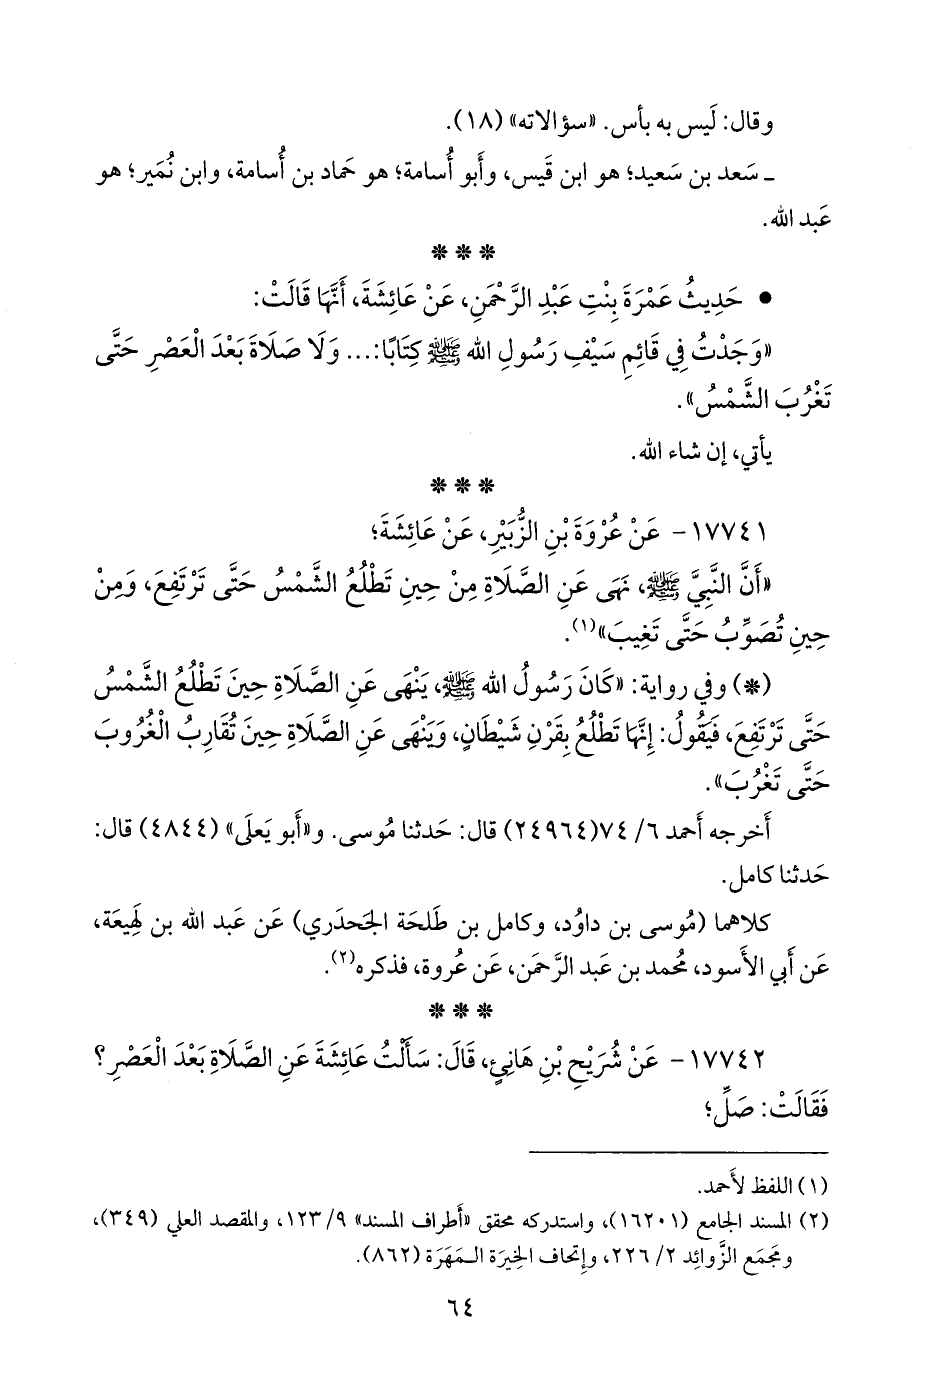 وقال: لَيس به بأس. «سؤالاته» (١٨).
ـ سَعد بن سَعيد؛ هو ابن قَيس، وأَبو أُسامة؛ هو حَماد بن أُسامة، وابن نُمَير؛ هو
عَبد الله.
* * *
• حَدِيثُ عَمْرَةَ بِنْتِ عَبْدِ الرَّحْمَنِ، عَنْ عَائِشَةَ، أَنَّهَا قَالَتْ:
«وَجَدْتُ فِي قَائِمِ سَيْفِ رَسُولِ الله ﷺ كِتَابًا:... وَلَا صَلَاةَ بَعْدَ الْعَصْرِ حَتَّى
تَغْرُبَ الشَّمْسُ».
يأتي، إن شاء الله.
* * *
١٧٧٤١- عَنْ عُرْوَةَ بْنِ الزُّبَيْرِ، عَنْ عَائِشَةَ؛
«أَنَّ النَّبِيَّ ﷺ، نَهَى عَنِ الصَّلَاةِ مِنْ حِينِ تَطْلُعُ الشَّمْسُ حَتَّى تَرْتَفِعَ، وَمِنْ
حِينِ تُصَوِّبُ حَتَّى تَغِيبَ»(١).
(*) وفي رواية: «كَانَ رَسُولُ الله ﷺ، يَنْهَى عَنِ الصَّلَاةِ حِينَ تَطْلُعُ الشَّمْسُ
حَتَّى تَرْتَفِعَ، فَيَقُولُ: إِنَّهَا تَطْلُعُ بِقَرْنِ شَيْطَانٍ، وَيَنْهَى عَنِ الصَّلَاةِ حِينَ تُقَارِبُ الْغُرُوبَ
حَتَّى تَغْرُبَ».
أَخرجه أَحمد ٦/ ٧٤(٢٤٩٦٤) قال: حَدثنا مُوسى. و«أَبو يَعلَى» (٤٨٤٤) قال:
حَدثنا كامل.
كلاهما (مُوسى بن داوُد، وكامل بن طَلحَة الجَحدَري) عَن عَبد الله بن لَهِيعَة،
عَن أَبي الأَسود، مُحمد بن عَبد الرَّحمَن، عَن عُروة، فذكره(٢).
* * *
١٧٧٤٢- عَنْ شُرَيْحِ بْنِ هَانِئٍ، قَالَ: سَأَلْتُ عَائِشَةَ عَنِ الصَّلَاةِ بَعْدَ الْعَصْرِ؟
فَقَالَتْ: صَلِّ؛
(١) اللفظ لأَحمد.
(٢) المسند الجامع (١٦٢٠١)، واستدركه محقق «أطراف المسند» ٩/ ١٢٣، والمقصد العلي (٣٤٩)،
ومَجمَع الزَّوائِد ٢/ ٢٢٦، وإتحاف الخِيرَة الـمَهَرَة (٨٦٢).
٦٤